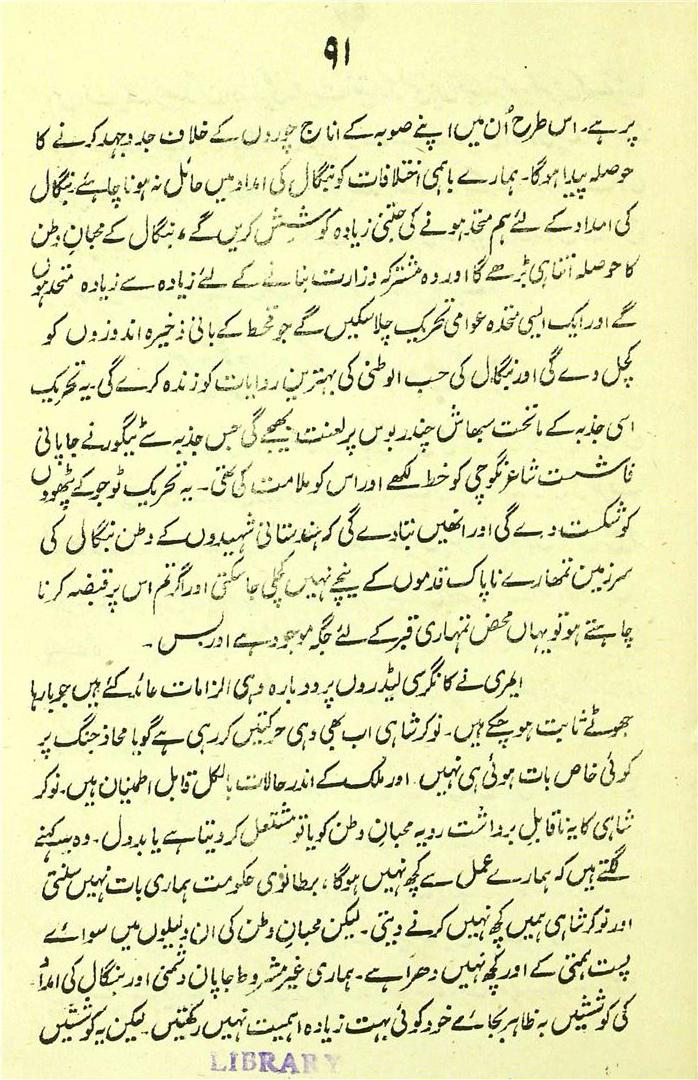 ۹۱
پر ہے۔ اس طرح اُن میں اپنے صوبہ کے اناج چوروں کے خلاف جدوجہد کرنے کا
حوصلہ پیدا ہوگا۔ ہمارے باہمی اختلافات کو بنگال کی امداد میں حائل نہ ہونا چاہئے بنگال
کی امداد کے لئے ہم متحد ہونے کی جتنی زیادہ کوشش کریں گے، بنگال کے محبانِ وطن
کا حوصلہ اتنا ہی بڑھے گا اور وہ مشترکہ وزارت بنانے کے لئے زیادہ سے زیادہ متحد ہوں
گے اور ایک ایسی متحدہ عوامی تحریک چلا سکیں گے جو قحط کے بانی ذخیرہ اندوزوں کو
کچل دے گی اور بنگال کی حب الوطنی کی بہترین روایات کو زندہ کرے گی۔ یہ تحریک
اسی جذبہ کے ماتحت سبھاش چندر بوس پر لعنت بھیجے گی جس جذبہ سے ٹیگور نے جاپانی
فاشست شاعر نگوچی کو خط لکھے اور اس کو ملامت کی تھی۔ یہ تحریک ٹوجو کے پٹھووں
کو شکست دے گی اور انھیں بتا دے گی کہ ہندستانی شہیدوں کے وطن بنگال کی
سرزمین تمھارے ناپاک قدموں کے نیچے نہیں کچلی جا سکتی اور اگر تم اس پر قبضہ کرنا
چاہتے ہو تو یہاں محض تمہاری قبر کے لئے جگہ موجود ہے اور بس۔
ایمری نے کانگرسی لیڈروں پر دوبارہ وہی الزامات عائد کئے ہیں جو بارہا
جھوٹے ثابت ہو چکے ہیں۔ نوکر شاہی اب بھی وہی حرکتیں کر رہی ہے گویا محاذ جنگ پر
کوئی خاص بات ہوئی ہی نہیں اور ملک کے اندر حالات بالکل قابل اطمینان ہیں۔ نوکر
شاہی کا یہ ناقابلِ برداشت رویہ محبانِ وطن کو یا تو مشتعل کر دیتا ہے یا بددل۔ وہ یہ کہنے
لگتے ہیں کہ ہمارے عمل سے کچھ نہیں ہوگا، برطانوی حکومت ہماری بات نہیں سنتی
اور نوکر شاہی ہمیں کچھ نہیں کرنے دیتی۔ لیکن محبانِ وطن کی ان دلیلوں میں سوائے
پست ہمتی کے اور کچھ نہیں دھرا ہے۔ ہماری غیر مشروط جاپان دشمنی اور بنگال کی امداد
کی کوششیں بہ ظاہر بجائے خود کوئی بہت زیادہ اہمیت نہیں رکھتیں۔ لیکن یہ کوششیں
LIBRARY